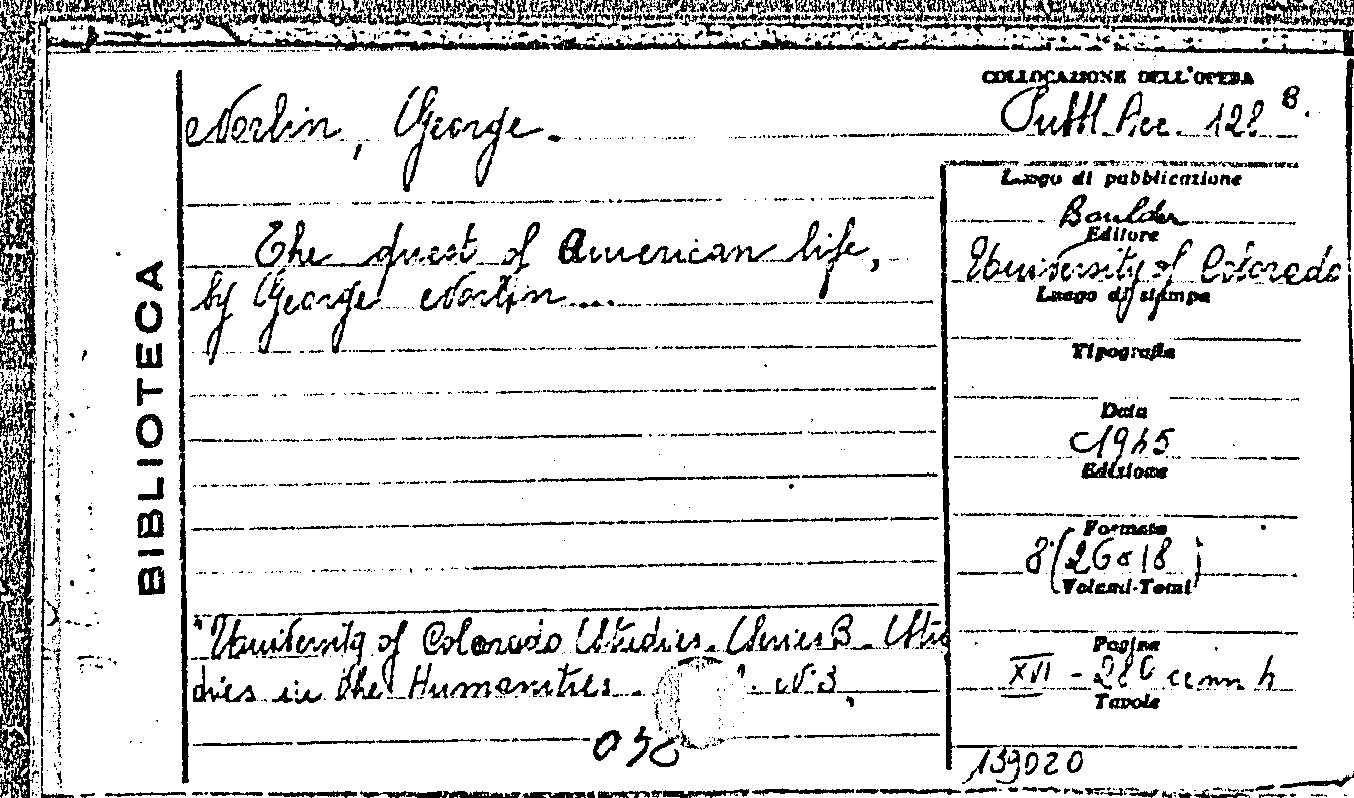 COLLOCAZIONE DELL'OPERA
Norlin, George.
Pubbl. Acc. 128 B.
BIBLIOTECA
The quest of American life,
by George Norlin...
Luogo di pubblicazione
Boulder
Editore
University of Colorado
Luogo di stampa
Tipografia
Data
1945
Edizione
Formato
8° (26 18)
Volumi-Tomi
Pagine
XVI - 280
Tavole
139020
"University of Colorado Studies. Series B. Stu
dies in the Humanities. N.3,